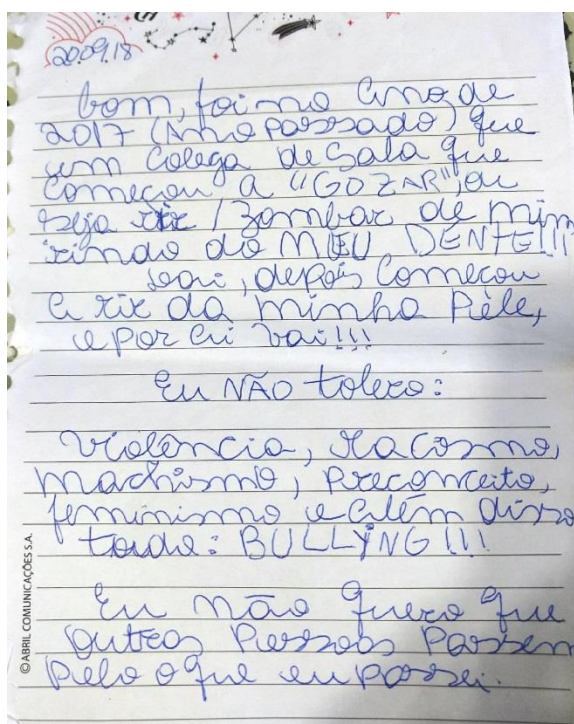 20.09.18
bom, foi no ano de
2017 (Ano passado) que
um colega de sala que
começou a "GOZAR", ou
seja rir / zombar de mim
rindo do MEU DENTE!!!
daí, depois começou
a rir da minha Pele,
e por aí vai!!!
Eu NÃO tolero:
violência, racismo,
machismo, preconceito,
feminismo e além disso
tudo: BULLYNG!!!
Eu não quero que
outras pessoas passem
pelo o que eu passei.
© ABRIL COMUNICAÇÕES S.A.